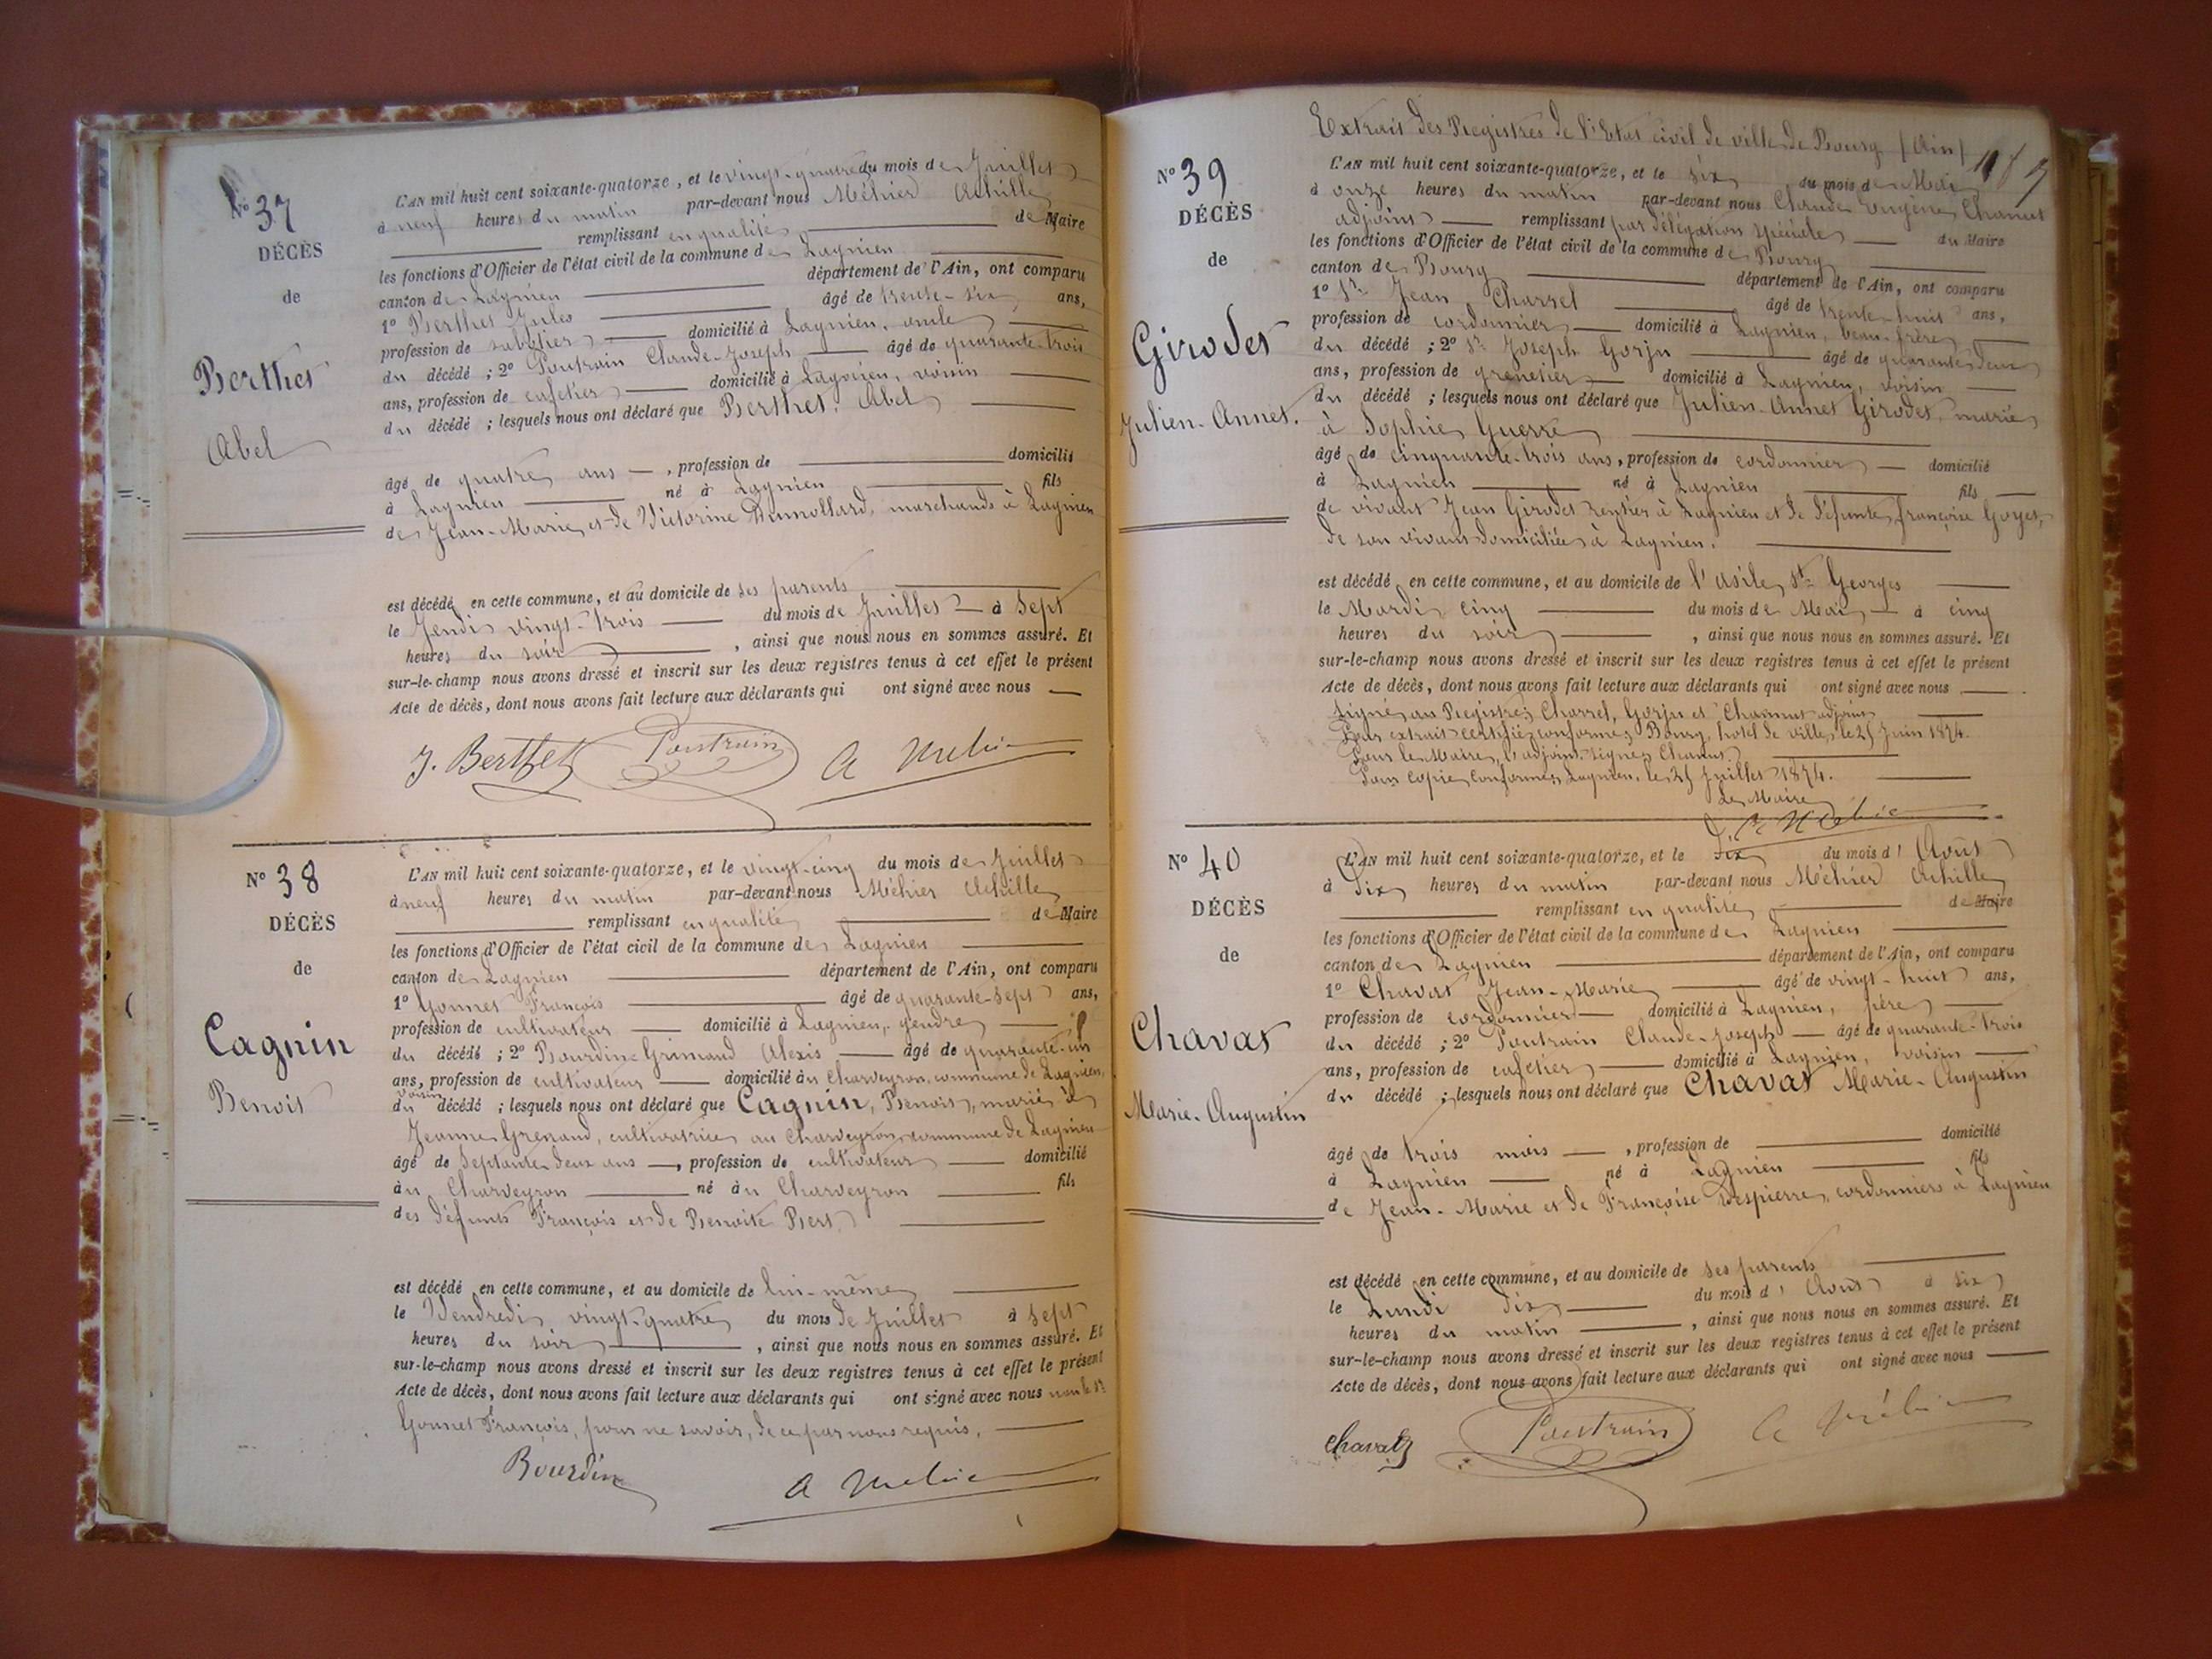 No 37
DÉCÈS
de
Berthet
Abel
L'AN mil huit cent soixante-quatorze, et le vingt-quatre du mois de Juillet
à neuf heures du matin par-devant nous Méhier Achille
remplissant en qualité de Maire
les fonctions d'Officier de l'état civil de la commune de Lagnieu
canton de Lagnieu département de l'Ain, ont comparu
1° Berthet Jules âgé de trente-six ans,
profession de sabotier domicilié à Lagnieu, oncle
du décédé ; 2° Poutrain Claude-Joseph âgé de quarante-trois
ans, profession de cafetier domicilié à Lagnieu, voisin
du décédé ; lesquels nous ont déclaré que Berthet, Abel
âgé de quatre ans, profession de domicilié
à Lagnieu né à Lagnieu fils
de Jean-Marie et de Victorine Dumollard, marchands à Lagnieu
est décédé en cette commune, et au domicile de ses parents
le Jeudi vingt-trois du mois de Juillet à Sept
heures du soir, ainsi que nous nous en sommes assuré. Et
sur-le-champ nous avons dressé et inscrit sur les deux registres tenus à cet effet le présent
Acte de décès, dont nous avons fait lecture aux déclarants qui ont signé avec nous
J. Berthet Poutrain A Mehier
No 38
DÉCÈS
de
Cagnin
Benoit
L'AN mil huit cent soixante-quatorze, et le vingt-cinq du mois de Juillet
à neuf heures du matin par-devant nous Méhier Achille
remplissant en qualité de Maire
les fonctions d'Officier de l'état civil de la commune de Lagnieu
canton de Lagnieu département de l'Ain, ont comparu
1° Gonnet François âgé de quarante-sept ans,
profession de cultivateur domicilié à Lagnieu, gendre
du décédé ; 2° Bourdin-Grimaud Alexis âgé de quarante-un
ans, profession de cultivateur domicilié au Charveyron, commune de Lagnieu,
voisin
du décédé ; lesquels nous ont déclaré que Cagnin, Benoit, marié à
Jeanne Grenaud, cultivatrice au Charveyron, commune de Lagnieu
âgé de septante-deux ans, profession de cultivateur domicilié
au Charveyron né au Charveyron fils
des défunts François et de Benoite Bert
est décédé en cette commune, et au domicile de lui-même
le Vendredi vingt-quatre du mois de Juillet à sept
heures du soir, ainsi que nous nous en sommes assuré. Et
sur-le-champ nous avons dressé et inscrit sur les deux registres tenus à cet effet le présent
Acte de décès, dont nous avons fait lecture aux déclarants qui ont signé avec nous non le Sr
Gonnet François, pour ne savoir, de ce par nous requis.
Bourdin A Mehier
Extrait des Registres de l'Etat civil de ville de Bourg (Ain)
No 39
DÉCÈS
de
Girodet
Julien-Annet.
L'AN mil huit cent soixante-quatorze, et le six du mois de Mai
à onze heures du matin par-devant nous Claude Eugène Chanut
adjoint remplissant par délégation spéciale du Maire
les fonctions d'Officier de l'état civil de la commune de Bourg
canton de Bourg département de l'Ain, ont comparu
1° Sr Jean Charrel âgé de trente-huit ans,
profession de cordonnier domicilié à Lagnieu, beau-frère
du décédé ; 2° Sr Joseph Gorju âgé de quarante-deux
ans, profession de grenetier domicilié à Lagnieu, voisin
du décédé ; lesquels nous ont déclaré que Julien-Annet Girodet, marié
à Sophie Guerre
âgé de cinquante-trois ans, profession de cordonnier domicilié
à Lagnieu né à Lagnieu fils
de vivant Jean Girodet rentier à Lagnieu et de défunte françoise Goyet,
de son vivant domiciliée à Lagnieu.
est décédé en cette commune, et au domicile de l'asile St Georges
le Mardi cinq du mois de Mai à cinq
heures du soir, ainsi que nous nous en sommes assuré. Et
sur-le-champ nous avons dressé et inscrit sur les deux registres tenus à cet effet le présent
Acte de décès, dont nous avons fait lecture aux déclarants qui ont signé avec nous
Signé au Registre: Charrel, Gorju et Chanut adjoint
Pour extrait certifié conforme, Bourg, hotel de ville, le 25 Juin 1874.
Pour le Maire, l'adjoint, signé Chanut.
Pour copie conforme, Lagnieu, le 25 Juillet 1874.
Le Maire
A Mehier
No 40
DÉCÈS
de
Chavat
Marie-Augustin
L'AN mil huit cent soixante-quatorze, et le dix du mois d'Août
à dix heures du matin par-devant nous Méhier Achille
remplissant en qualité de Maire
les fonctions d'Officier de l'état civil de la commune de Lagnieu
canton de Lagnieu département de l'Ain, ont comparu
1° Chavat Jean-Marie âgé de vingt-huit ans,
profession de cordonnier domicilié à Lagnieu, père
du décédé ; 2° Poutrain Claude-Joseph âgé de quarante-trois
ans, profession de cafetier domicilié à Lagnieu, voisin
du décédé ; lesquels nous ont déclaré que Chavat Marie-Augustin
âgé de trois mois, profession de domicilié
à Lagnieu né à Lagnieu fils
de Jean-Marie et de Françoise Despierre, cordonniers à Lagnieu
est décédé en cette commune, et au domicile de ses parents
le Lundi dix du mois d'Août à six
heures du matin, ainsi que nous nous en sommes assuré. Et
sur-le-champ nous avons dressé et inscrit sur les deux registres tenus à cet effet le présent
Acte de décès, dont nous avons fait lecture aux déclarants qui ont signé avec nous
Chavat Poutrain A Méhier